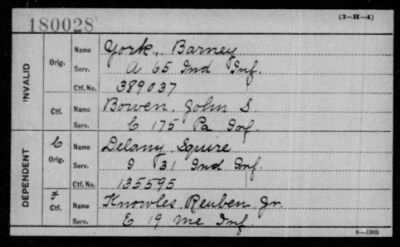 180028
(3-H-4)
INVALID
Orig.
Name York, Barney
Serv. A 65 Ind Inf.
Ctf. No. 389037
Ctf.
Name Bowen, John S.
Serv. C 175 Pa Inf.
DEPENDENT
C
Orig.
Name Delany, Squire
Serv. I 31 Ind Inf.
Ctf. No. 135595
Ctf.
Name Knowles, Reuben, Jr.
Serv. E 19 Me Inf.